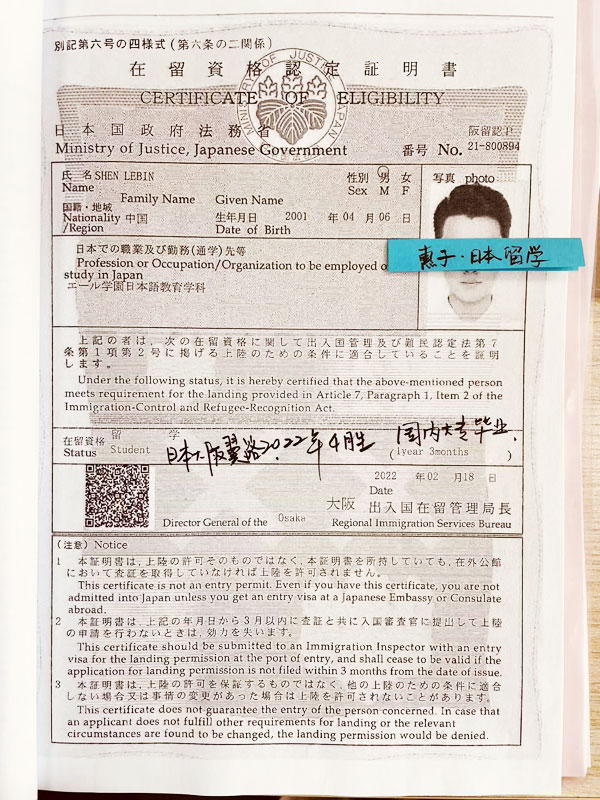 別記第六号の四様式(第六条の二関係)
在留資格認定証明書
CERTIFICATE OF ELIGIBILITY
MINISTRY OF JUSTICE, JAPAN
日本国政府法務省
Ministry of Justice, Japanese Government
阪留認P
番号 No. 21-800894
氏名 SHEN LEBIN
Name
Family Name Given Name
性別 男 女
Sex M F
写真 photo
国籍・地域
Nationality 中国
/Region
生年月日 2001 年 04 月 06 日
Date of Birth
惠子·日本留学
日本での職業及び勤務(通学)先等
Profession or Occupation/Organization to be employed o
study in Japan
エール学園日本語教育学科
上記の者は、次の在留資格に関して出入国管理及び難民認定法第7
条第1項第2号に掲げる上陸のための条件に適合していることを証明
します。
Under the following status, it is hereby certified that the above-mentioned person
meets requirement for the landing provided in Article 7, Paragraph 1, Item 2 of the
Immigration-Control and Refugee-Recognition Act.
在留資格 留 学
Status Student
(1year 3months )
日本大阪翼路2022年4月生
国内大专毕业,
2022 年 02 月 18 日
Date
大阪 出入国在留管理局長
Director General of the Osaka Regional Immigration Services Bureau
(注意) Notice
1 本証明書は、上陸の許可そのものではなく、本証明書を所持していても、在外公館
において査証を取得していなければ上陸を許可されません。
This certificate is not an entry permit. Even if you have this certificate, you are not
admitted into Japan unless you get an entry visa at a Japanese Embassy or Consulate
abroad.
2 本証明書は、上記の年月日から3月以内に査証と共に入国審査官に提出して上陸
の申請を行わないときは、効力を失います。
This certificate should be submitted to an Immigration Inspector with an entry
visa for the landing permission at the port of entry, and shall cease to be valid if the
application for landing permission is not filed within 3 months from the date of issue.
3 本証明書は、上陸の許可を保証するものではなく、他の上陸のための条件に適合
しない場合又は事情の変更があった場合は上陸を許可されないことがあります。
This certificate does not guarantee the entry of the person concerned. In case that
an applicant does not fulfill other requirements for landing or the relevant
circumstances are found to be changed, the landing permission would be denied.